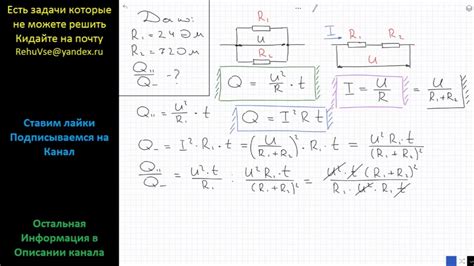 Есть задачи которые
не можете решить
Кидайте на почту
RehuVse@yandex.ru
Ставим лайки
Подписываемся на
Канал
Остальная
Информация в
Описании канала
Дано:
R₁ = 24 Ом
R₂ = 72 Ом
Q₁₁ / Q₋ - ?
R₁
U
R₂
I
R₁ R₂
U
Q = U²/R · t
I = U/R = U/(R₁+R₂)
Q₁₁ = U²/R₁ · t
Q = I² R t
Q₋ = I² · R₁ · t = (U/(R₁+R₂))² · R₁ · t = U² R₁ · t / (R₁+R₂)²
Q₁₁/Q₋ = U² · t / R₁ : U² R₁ · t / (R₁+R₂)² = U² · t (R₁+R₂)² / R₁ · U² · R₁ · t